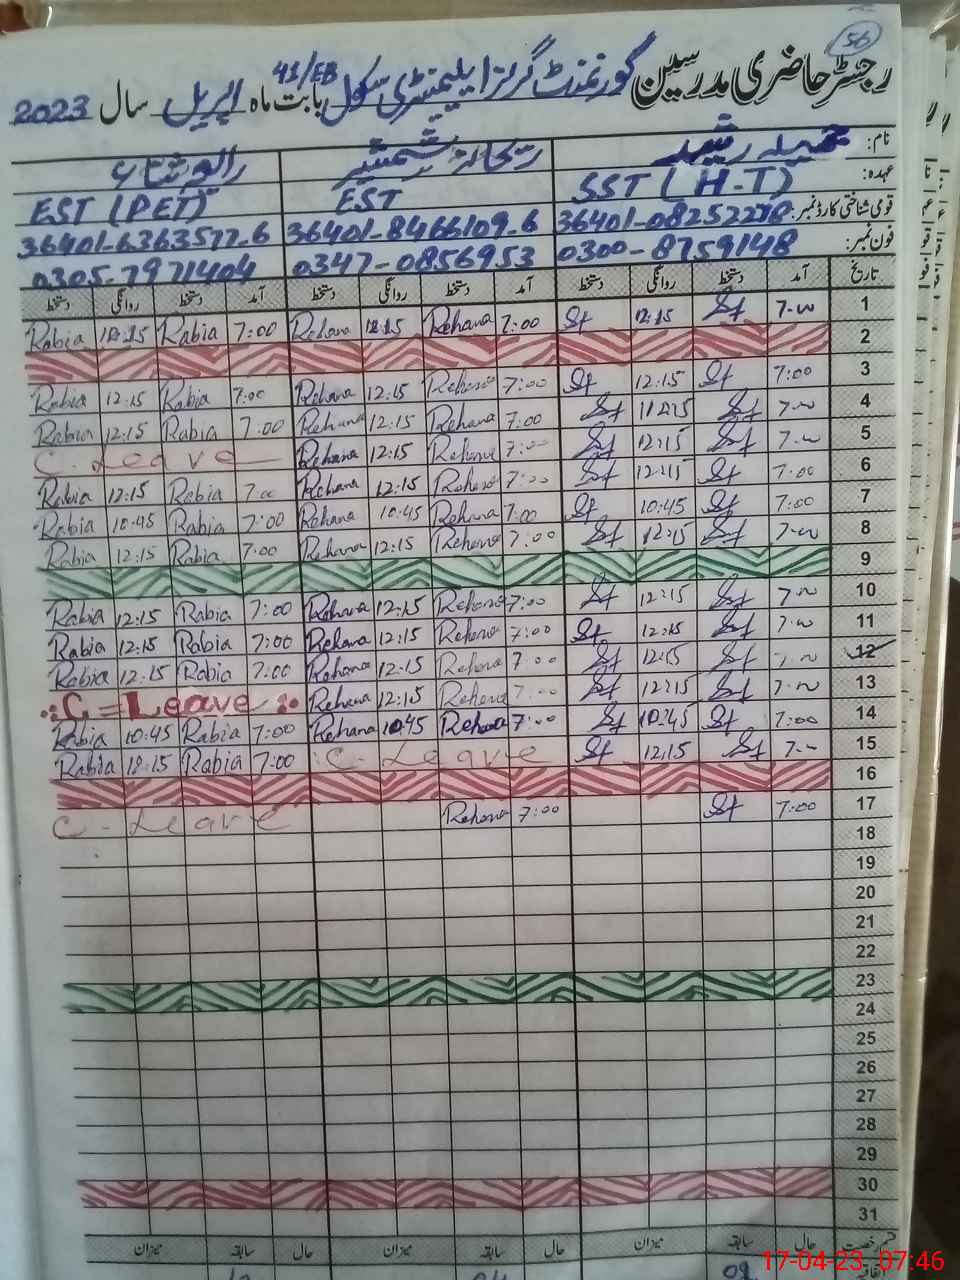 56
رجسٹر حاضری مدرسین گورنمنٹ گرلز ایلیمنٹری سکول 41/EB بابت ماہ اپریل سال 2023
نام: جمیلہ رشید ریحانہ شمشیر
عہدہ: SST (H-T) EST EST (PET)
قومی شناختی کارڈ نمبر: 36401-8466109-6 36401-6363577-6
فون نمبر: 0300-8759148 0347-0856953 0305-7971404
تاریخ آمد دستخط روانگی دستخط آمد دستخط روانگی دستخط آمد دستخط روانگی دستخط
1 7:00 St 12:15 St 7:00 Rehana 12:15 Rehana 7:00 Rabia 12:15 Rabia
2
3 7:00 St 12:15 St 7:00 Rehana 12:15 Rehana 7:00 Rabia 12:15 Rabia
4 7:00 St 12:15 St 7:00 Rehana 12:15 Rehana 7:00 Rabia 12:15 Rabia
5 7:00 St 12:15 St 7:00 Rehana 12:15 Rehana C. Leave
6 7:00 St 12:15 St 7:00 Rehana 12:15 Rehana 7:00 Rabia 12:15 Rabia
7 7:00 St 10:45 St 7:00 Rehana 10:45 Rehana 7:00 Rabia 10:45 Rabia
8 7:00 St 12:15 St 7:00 Rehana 12:15 Rehana 7:00 Rabia 12:15 Rabia
9
10 7:00 St 12:15 St 7:00 Rehana 12:15 Rehana 7:00 Rabia 12:15 Rabia
11 7:00 St 12:15 St 7:00 Rehana 12:15 Rehana 7:00 Rabia 12:15 Rabia
12 7:00 St 12:15 St 7:00 Rehana 12:15 Rehana 7:00 Rabia 12:15 Rabia
13 7:00 St 12:15 St 7:00 Rehana 12:15 Rehana C = Leave
14 7:00 St 10:45 St 7:00 Rehana 10:45 Rehana 7:00 Rabia 10:45 Rabia
15 7:00 St 12:15 St C. Leave 7:00 Rabia 12:15 Rabia
16
17 7:00 St 7:00 Rehana C - Leave
18
19
20
21
22
23
24
25
26
27
28
29
30
31
قسم رخصت حال سابقہ میزان حال سابقہ میزان حال سابقہ میزان
اتفاقیہ
17-04-23 07:46